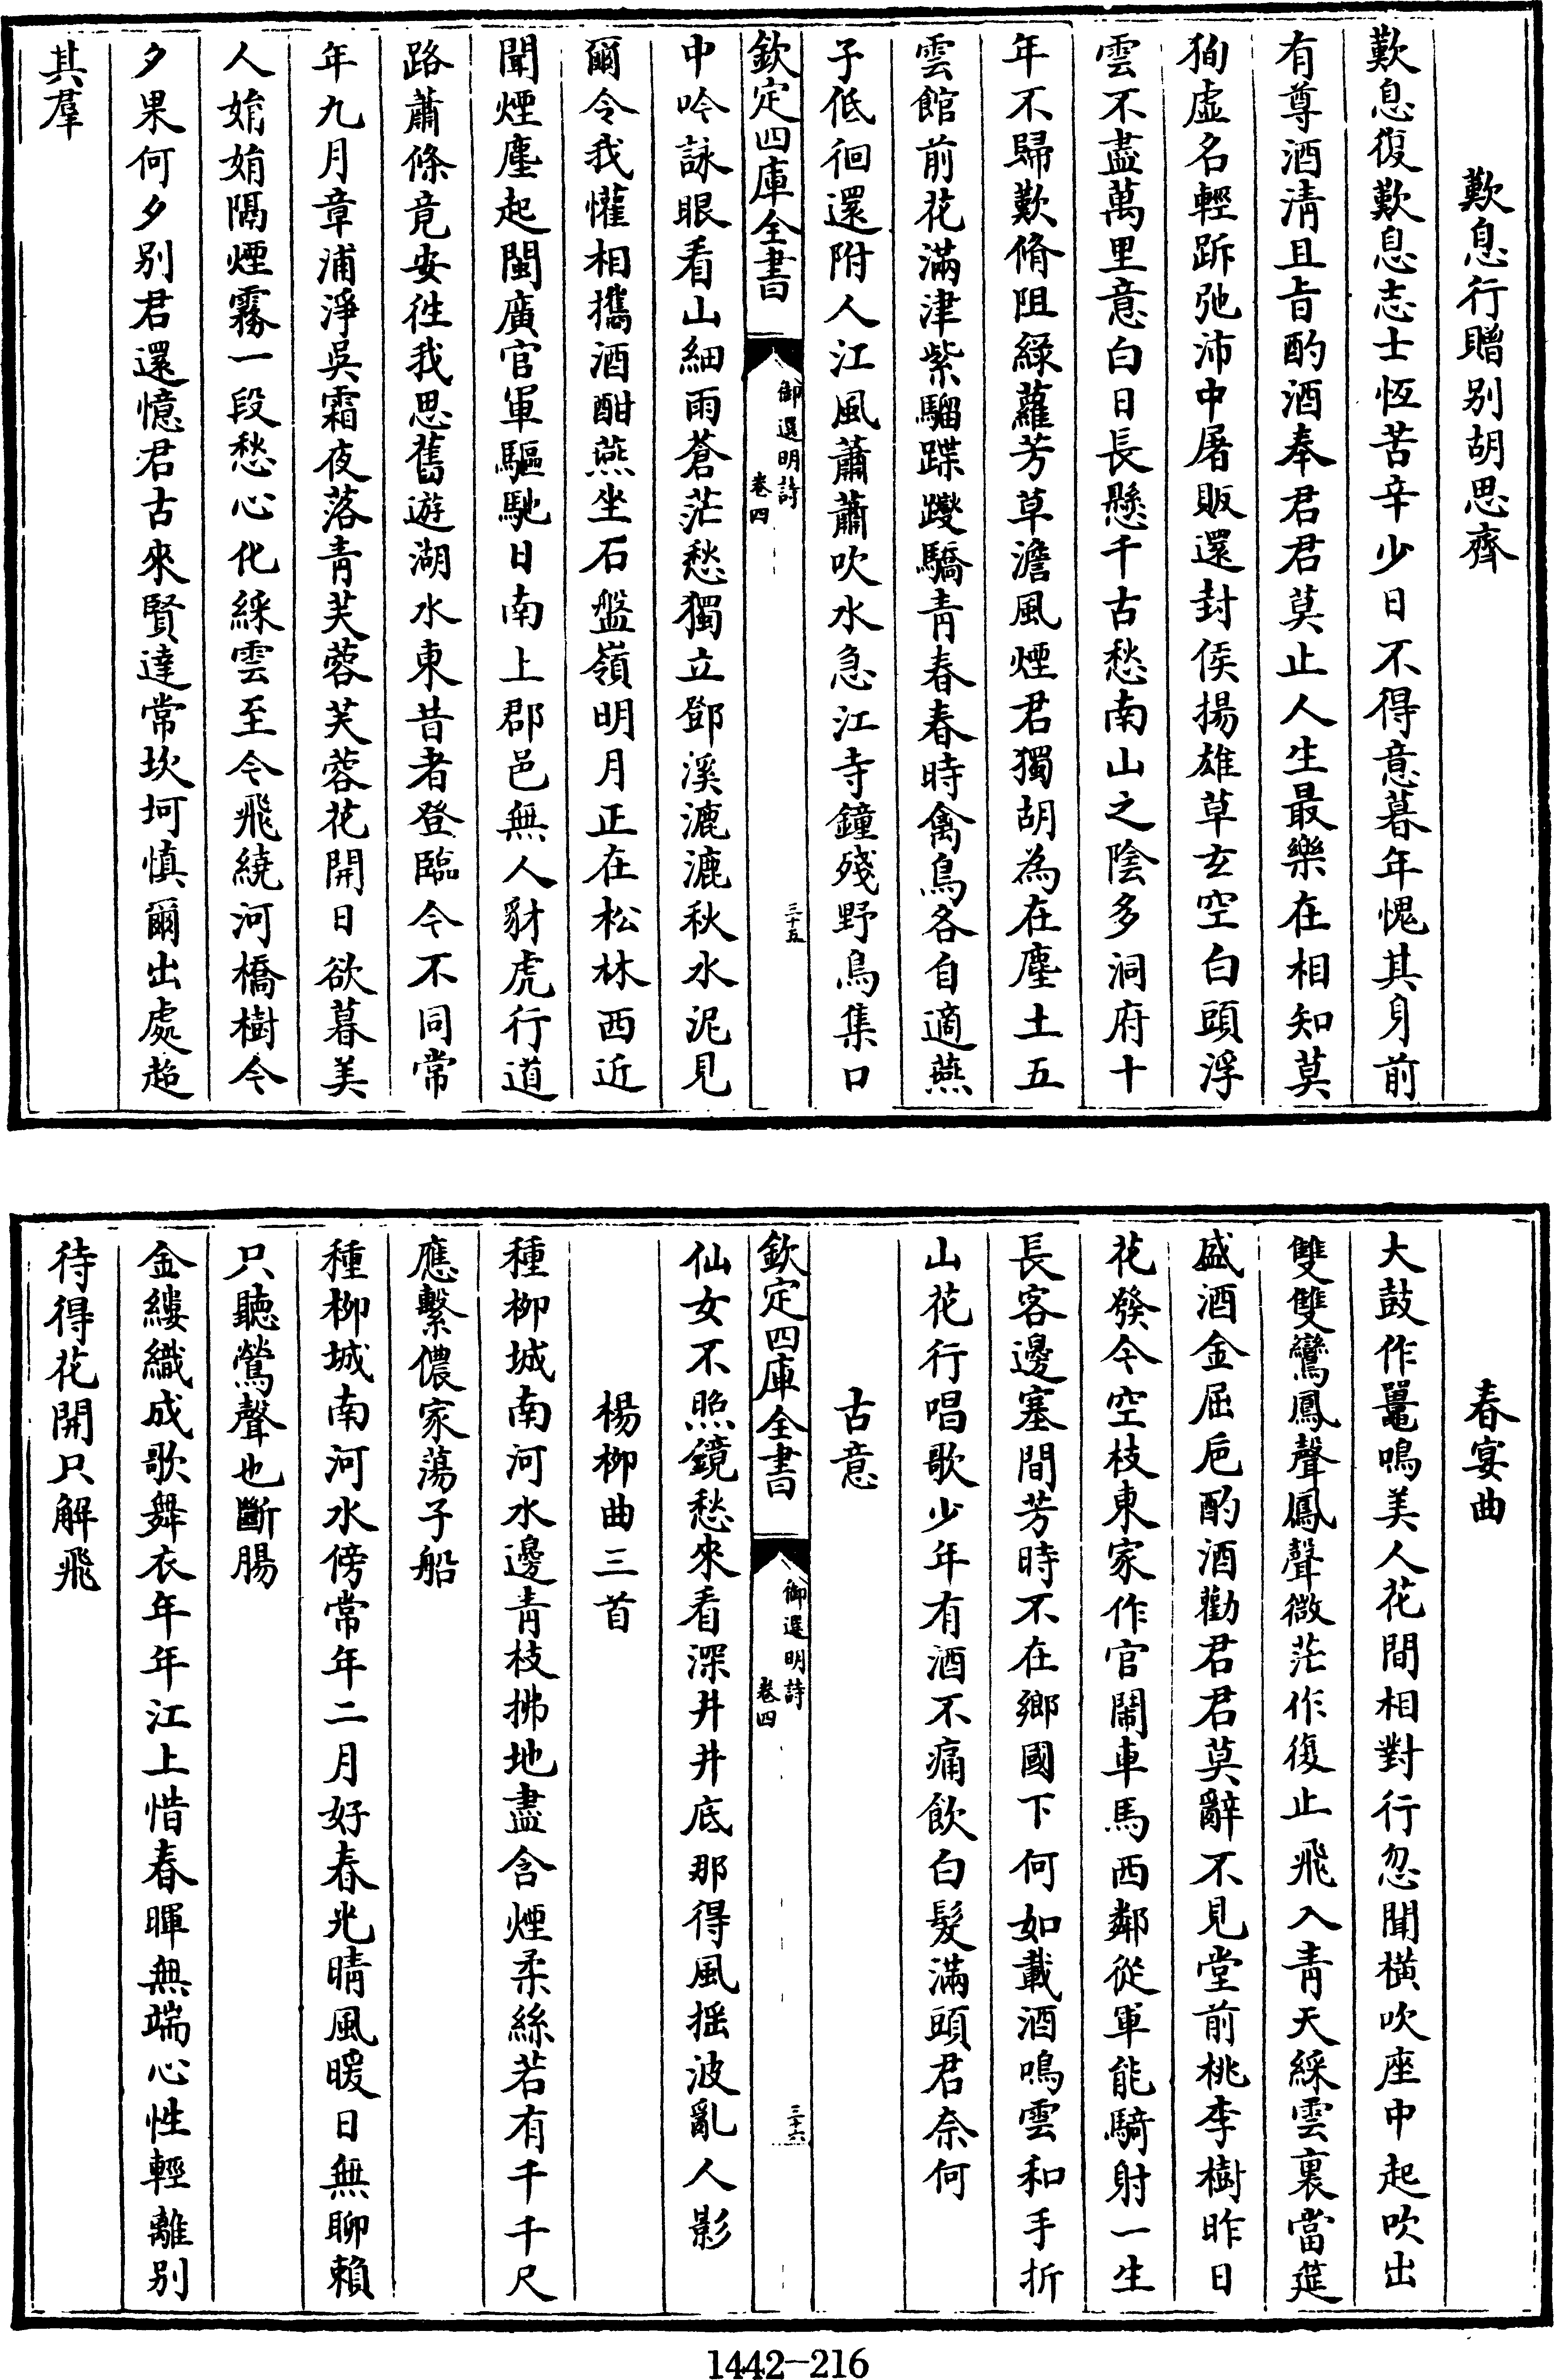 歎息行贈别胡思齊
歎息復歎息志士恆苦辛少日不得意暮年愧其身前
有尊酒清且旨酌酒奉君君莫止人生最樂在相知莫
狥虚名輕跅弛沛中屠販還封侯揚雄草玄空白頭浮
雲不盡萬里意白日長懸千古愁南山之陰多洞府十
年不歸歎脩阻綠蘿芳草澹風煙君獨胡為在塵土五
雲館前花滿津紫騮蹀躞驕青春春時禽鳥各自適燕
子低徊還附人江風蕭蕭吹水急江寺鐘殘野烏集口
欽定四庫全書
御選明詩
卷四
三十五
中吟詠眼看山細雨蒼茫愁獨立鄧溪漉漉秋水泥見
爾令我懽相攜酒酣燕坐石盤嶺明月正在松林西近
聞煙塵起閩廣官軍驅馳日南上郡邑無人豺虎行道
路蕭條竟安往我思舊遊湖水東昔者登臨今不同常
年九月章浦淨吳霜夜落青芙蓉芙蓉花開日欲暮美
人娟娟隔煙霧一段愁心化綵雲至今飛繞河橋樹今
夕果何夕别君還憶君古來賢達常坎坷慎爾出處趨
其羣
春宴曲
大鼓作鼉鳴美人花間相對行忽聞横吹座中起吹出
雙雙鸞鳳聲鳳聲微茫作復止飛入青天綵雲裏當筵
盛酒金屈卮酌酒勸君君莫辭不見堂前桃李樹昨日
花發今空枝東家作官鬧車馬西鄰從軍能騎射一生
長客邊塞間芳時不在鄉國下何如載酒鳴雲和手折
山花行唱歌少年有酒不痛飲白髮滿頭君奈何
古意
欽定四庫全書
御選明詩
卷四
三十六
仙女不照鏡愁來看深井井底那得風摇波亂人影
楊柳曲三首
種柳城南河水邊青枝拂地盡含煙柔絲若有千千尺
應繫儂家蕩子船
種柳城南河水傍常年二月好春光晴風暖日無聊賴
只聽鶯聲也斷腸
金縷織成歌舞衣年年江上惜春暉無端心性輕離别
待得花開只解飛
1442-216